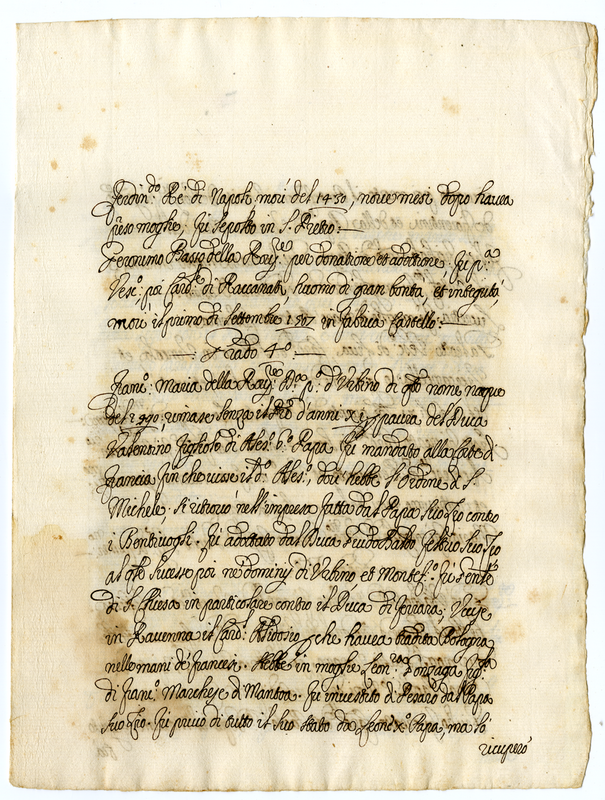 Ferdin.do Rè di Napoli morì del 1450, nove mesi dopo havea
preso moglie, fù sepolto in S. Pietro:
Geronimo Basso della Rov.re per donatione et adottione. Fù p.a
Vesc.o poi Card.le di Raccanati, huomo di gran bontà, et integrità,
morì il primo di Settembre 1507 in fabrica Castello:
Grado 4.o
Fran.o Maria della Rov.re D.ca p.o d'Urbino di q.to nome nacque
del 1490: rimase senza il P.re d'anni xi, paura del Duca
Valentino figliolo di Ales.o 6.o Papa fù mandato alla Corte di
Francia fin che visse il d.o Ales.o, dove hebbe l'ordine di S.
Michele, si ritrovò nell'impresa fatta dal Papa suo Zio contro
i Bentivogli. fù adottato dal Duca Guidobaldo Feltrio suo Zio
al q.le sucesse poi ne dominij di Urbino, et Montef.o. fù Gen.le
di S. Chiesa in particolare contro il Duca di Ferrara, Uccise
in Ravenna il Card. Alidosio, che havea tradita Bologna
nelle mani de francesi. Hebbe in moglie Leon.ra Gonzaga fig.la
di Fran.o Marchese di Mantoa. fù investito di Pesaro dal Papa
suo Zio. fù privo di tutto il suo stato da Leone X.o Papa, ma lo
ricuperò